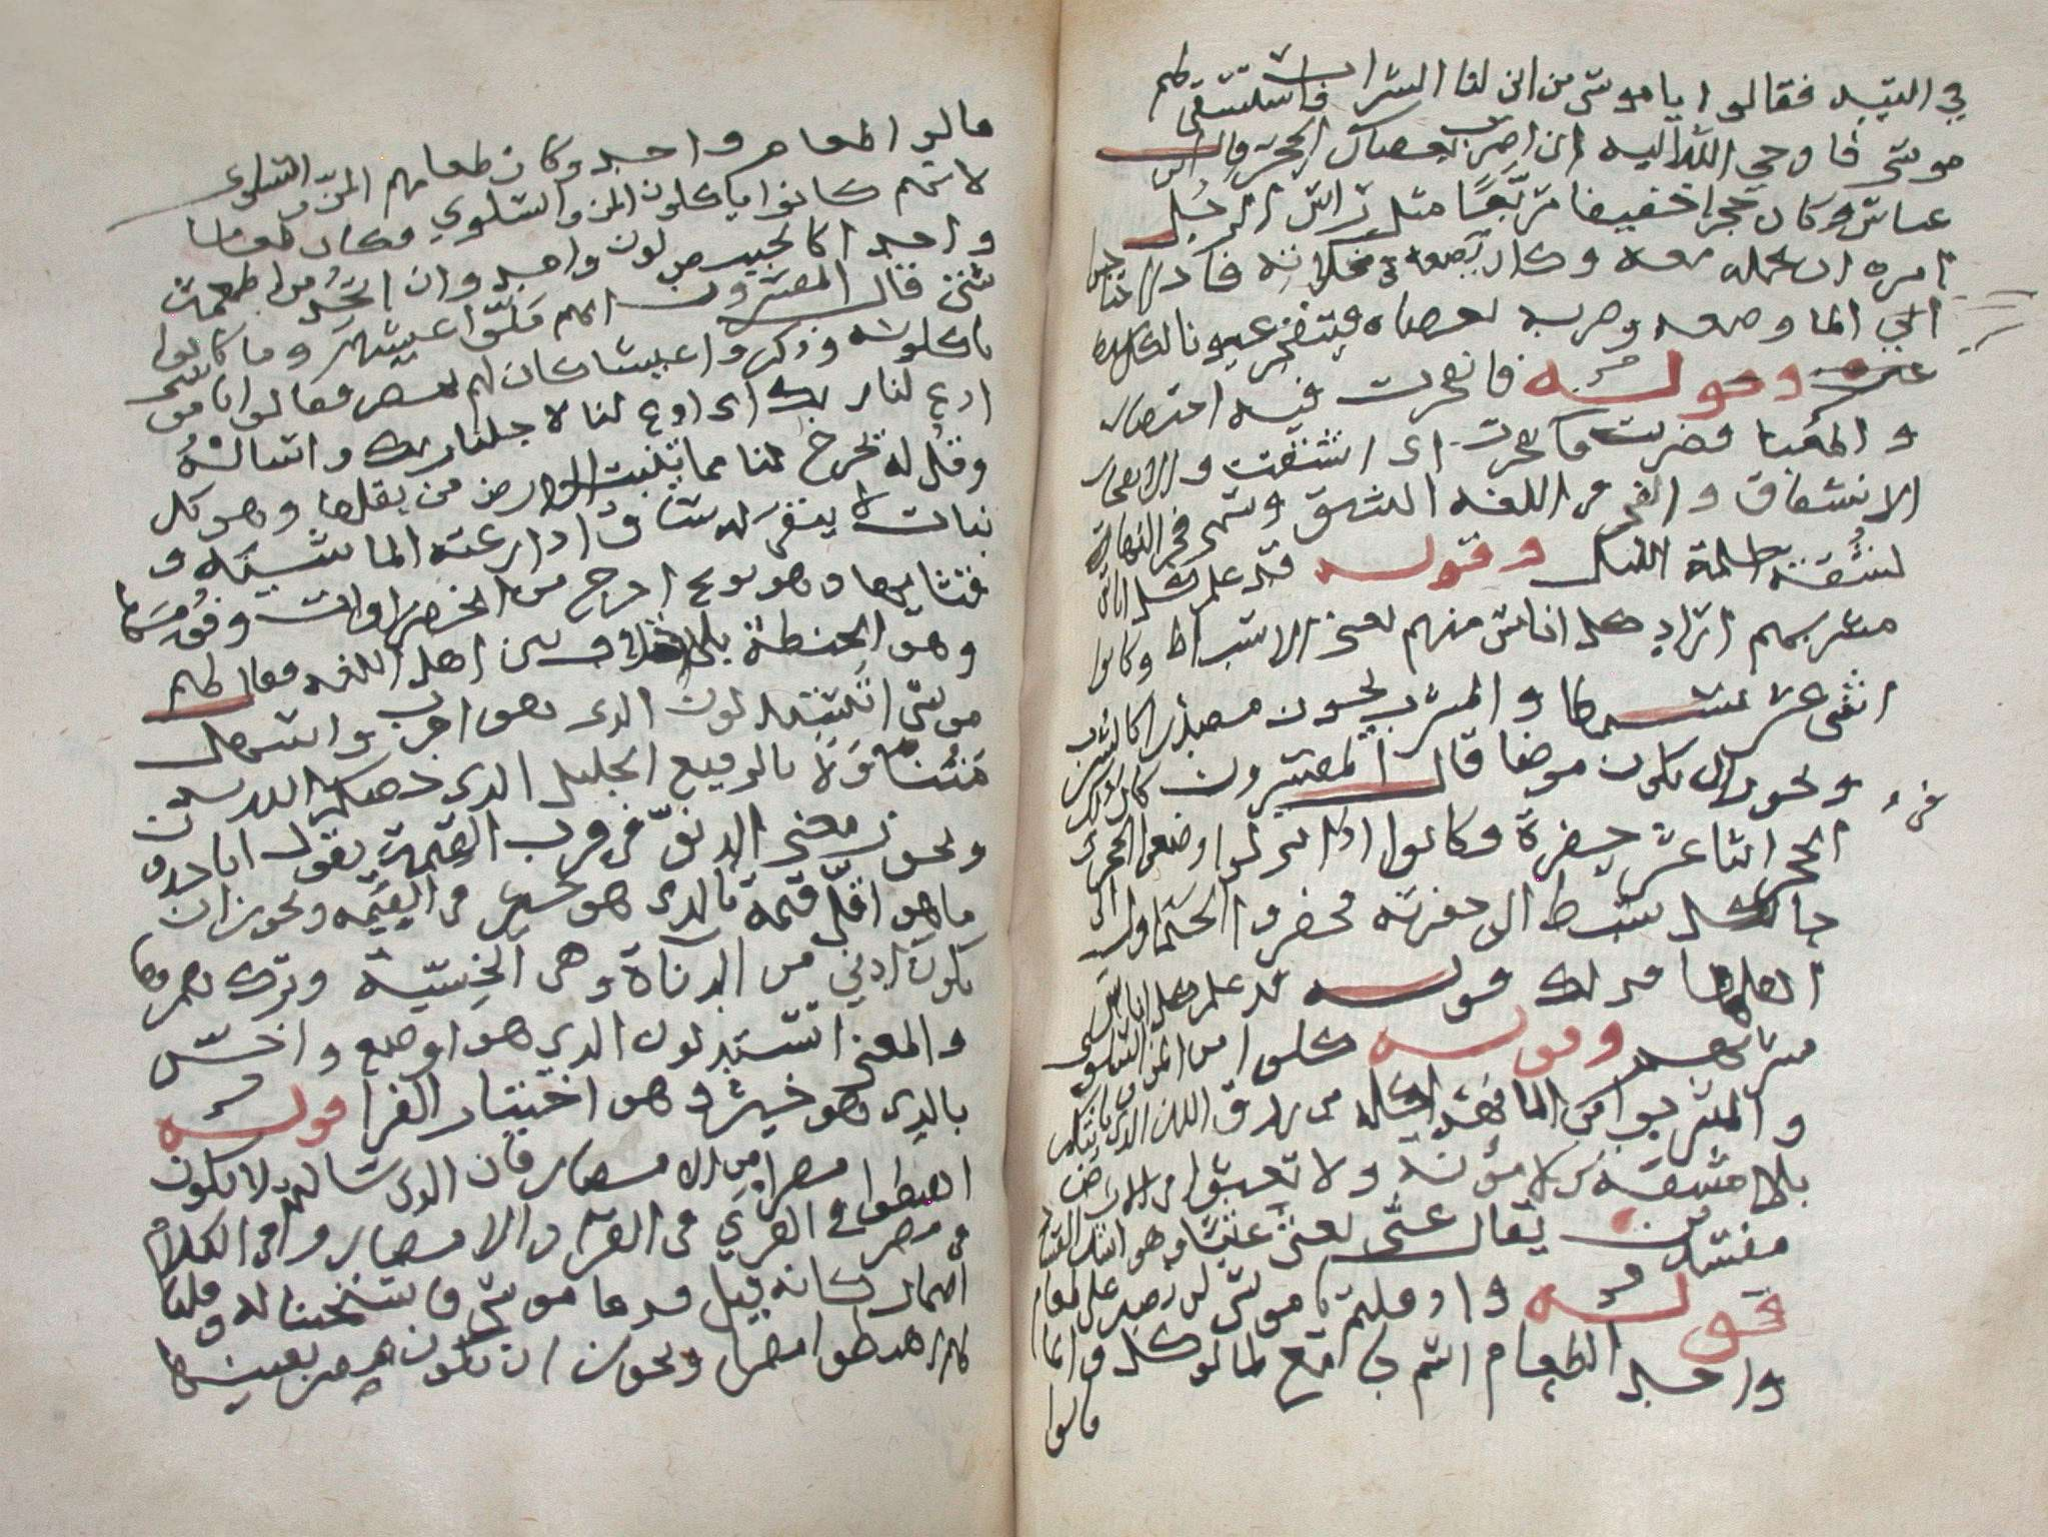 في التيه فقالوا يا موسى من اين لنا الشراب فاستسقى لهم
موسى فاوحى الله اليه ان اضرب بعصاك الحجر قال ابن
عباس وكان حجرا خفيفا مربعا مثل راس الرجل
امره ان يحمله معه وكان يضعه في مخلاته فاذا احتاجوا
الي الما وضعه وضربه بعصاه فيتفجر عيونا لكل سبط
عين وقوله فانفجرت فيه اختصار
والمعنا فضرب فانفجرت اى انشقت والانفجار
الانشقاق والفجر في اللغه الشق وسمي فجر النهار
لشقه ظلمة الليل وقوله قد علم كل اناس
مشربهم اراد كل اناس منهم يعنى الاسباط وكانوا
اثنى عشر سبطا والمشرب يجوز مصدرا كالشرب
ويجوز ان يكون موضعا قال المفسرون كان في ذلك
الحجر اثنا عشر حفرة وكانوا اذا نزلوا وضعوا الحجر و
جا كل سبط الى حفرته فحفروا الجداول الى
اهلها فذلك قوله قد علم كل اناس
مشربهم وقوله كلوا اى من المن والسلوى
واشربوا من الما فهذا كله من رزق الله الذى ياتيكم
بلا مشقة ولا مؤنة ولا تعثوا في الارض
مفسدين يقال عثى يعثى عثيا وهو اشد الفساد
قوله واذ قلتم يا موسى لن نصبر على طعام
واحد الطعام اسم جامع لما يوكل وانما
قالوا
قالوا طعام واحد وكان طعامهم المن والسلوى
لانهم كانوا ياكلون المن والسلوي فكان طعاما
واحدا كالخبيص لون واحد وان اتخذ من اطعمة
شتى قال المفسرون انهم ملوا عيشهم وما كانوا
ياكلونه وذكروا عيشا كان لهم بمصر فقالوا يا موسى
ادع لنا ربك اى ادع لنا لاجلنا ربك واساله
وقل له يخرج لنا مما تنبت الارض من بقلها وهو كل
نبات لا يبقى له ساق اذا رعته الماشية و
قثايها وهو نوع اخرج من الخضراوات وفومها
وهو الحنطة بلا خلاف بين اهل اللغه فقال لهم
موسى اتستبدلون الذى هو اقرب واسهل
متناولا بالرفيع الجليل الذى خصكم الله به
ويجوز معنى الدنو في قرب القيمة يقول اتاخذون
ما هو اقل قيمة بالذى هو خير في القيمه ويجوز ان
يكون ادني من الدناة وهى الخسية وترك همزها
والمعنى اتستبدلون الذي هو اوضع واخس
بالذى هو خير وهو اختيار الفرا قوله
اهبطوا مصرا من الامصار فان الذى سالتم لا يكون
في القري في القرا والامصار وفى الكلام
اضمار كانه قيل فدعا موسى فاستجبنا له وقلنا
لهم اهبطوا مصرا ويجوز ان يكون مصر بعينها